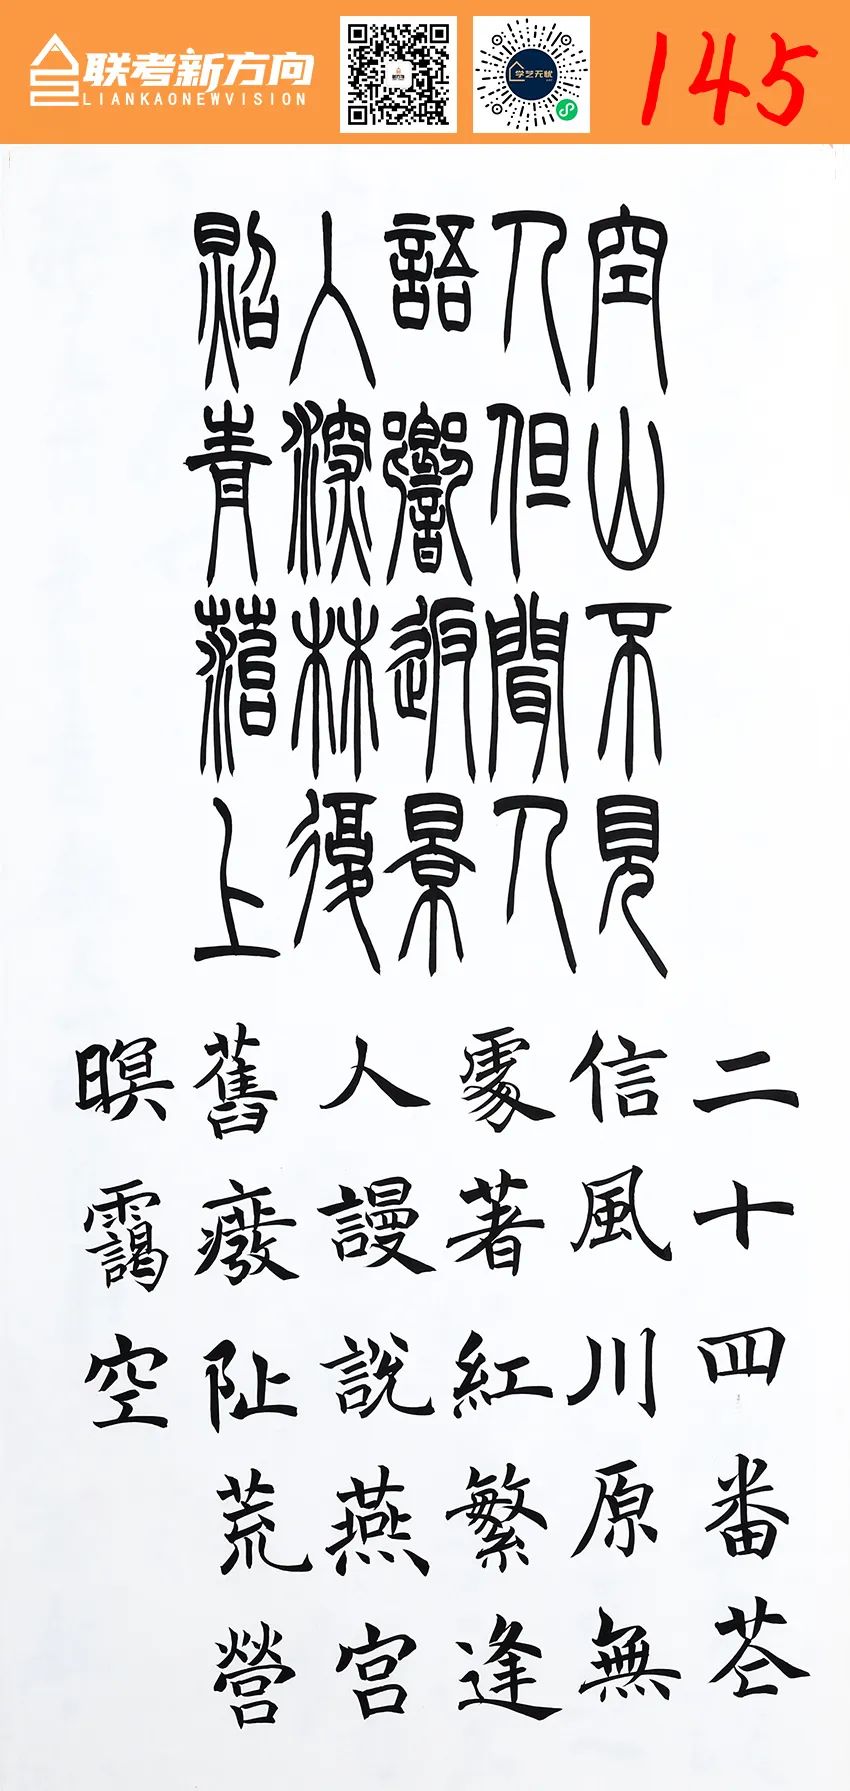 联考新方向
LIANKAONEWVISION
学艺无忧
145
空山不見
人但聞人
語響返景
入深林復
照青菭上
二十四番芲
信風川原無
處著紅繁逢
人謾說燕宮
舊廢阯荒營
暝靄空